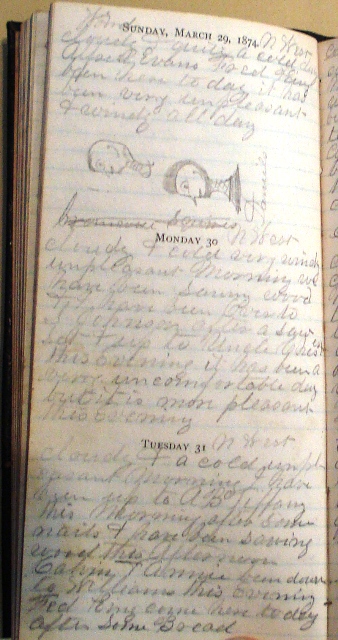 Wind
SUNDAY, MARCH 29, 1874. N West
Cloudy & quite a cold day
Evans Fred King
been here to day it has
been very unpleasant
& windy all day
MONDAY 30 N West
Cloudy & cold very windy
unpleasant Morning we
have been sawing wood
I have been down to
Johnson after a saw
up to Uncle
this Evening it has been a
very uncomfortable day
but it is more pleasant
this Evening
TUESDAY 31 N West
Cloudy & a cold unpl-
easant Morning I have
been up to A B Tiffany
this Morning after some
nails I have been sawing
wood this afternoon
been down
to Williams this Evening
Fred King come here to day
after some Bread